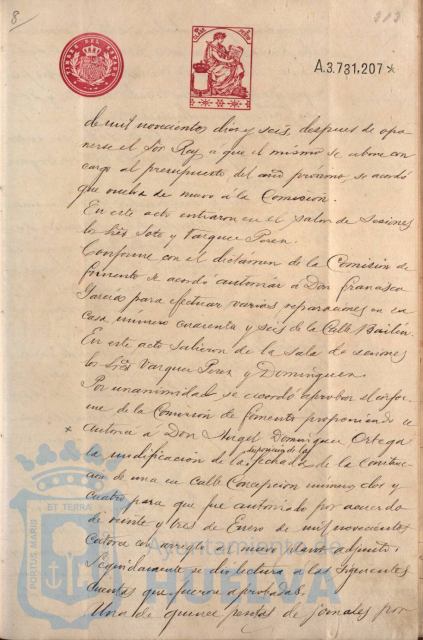 8
313
TIMBRE DEL ESTADO
A.3.731,207*
de mil novecientos diez y seis, despues de opo-
nerse el Sor. Rey, a que el mismo se abone con
cargo al presupuesto del año próximo, se acordó
que vuelva de nuevo á la Comisión.
En este acto entraron en el salon de sesiones
los Sres Soto y Vazquez Perez.
Conforme con el dictámen de la Comisión de
fomento se acordó autorizar á Don Francisco
García para efectuar varias reparaciones en la
casa número cuarenta y seis de la Calle Bailén.
En este acto salieron de la sala de sesiones
los Sres Vazquez Perez y Dominguez.
Por unanimidad se acordó aprobar el infor-
me de la Comisión de fomento proponiendo se
autorice á Don Angel Dominguez Ortega
la modificación de la fachada de la Construc-
cion de una en calle Concepcion número dos y
cuatro para que fue autorizado por acuerdo
de veinte y tres de Enero de mil novecientos
catorce con arreglo al nuevo plano adjunto.
Seguidamente se dio lectura a las siguientes
cuentas que fueron aprobadas.
Una de quince pesetas de jornales por
PORTUS MARIS
ET TERRAE
Ayuntamiento de
HUELVA